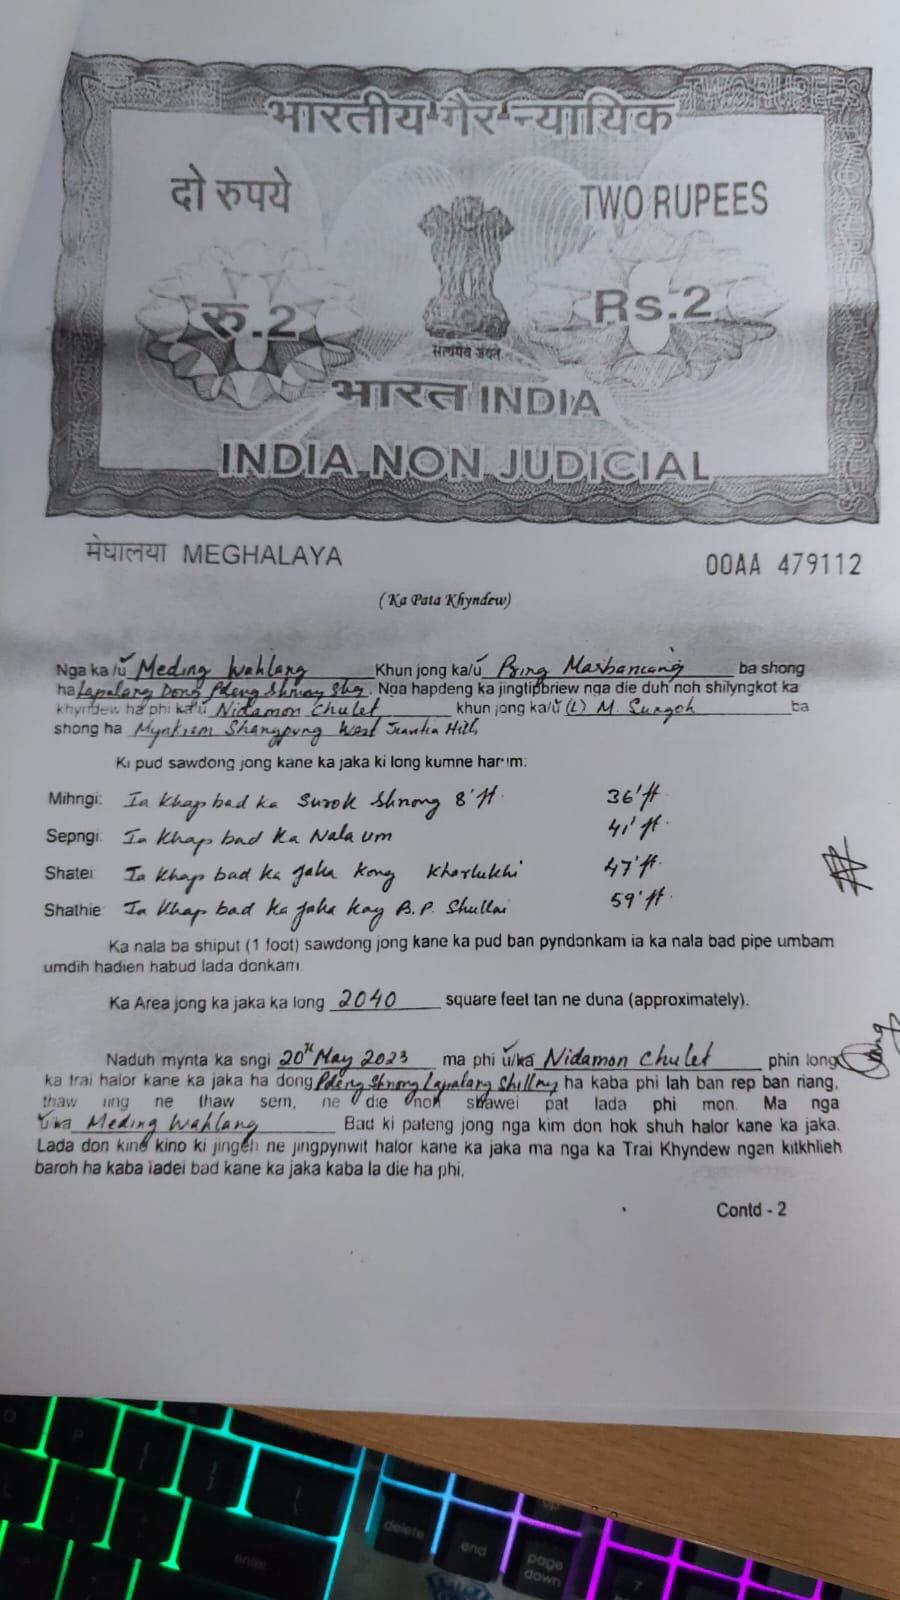 भारतीय गैर न्यायिक
दो रुपये TWO RUPEES
रु.2 Rs.2
सत्यमेव जयते
भारत INDIA
INDIA NON JUDICIAL
मेघालया MEGHALAYA 00AA 479112
(Ka Pata Khyndew)
Nga ka/u Meding Wahlang Khun jong ka/u Bring Marbaniang ba shong
ha Lapalang Dong Pdeng Shnong Shg. Nga hapdeng ka jingtipbriew nga die duh noh shilyngkot ka
khyndew ha phi ka/u Nidamon Chulet khun jong ka/u (L) M. Sungoh ba
shong ha Mynkrem Shangpung West Jaintia Hills
Ki pud sawdong jong kane ka jaka ki long kumne harum:
Mihngi: Ia Khap bad ka Surok Shnong 8' ft. 36' ft.
Sepngi: Ia Khap bad Ka Nala um 41' ft.
Shatei: Ia Khap bad ka Jaka Kong Kharlukhi 47' ft.
Shathie: Ia Khap bad Ka Jaka Kay B.P. Shullai 59' ft.
Ka nala ba shiput (1 foot) sawdong jong kane ka pud ban pyndonkam ia ka nala bad pipe umbam
umdih hadien habud lada donkam.
Ka Area jong ka jaka ka long 2040 square feet tan ne duna (approximately).
Naduh mynta ka sngi 20th May 2023 ma phi u/ka Nidamon Chulet phin long
ka trai halor kane ka jaka ha dong Pdeng Shnong Lapalang Shillong ha kaba phi lah ban rep ban riang,
thaw iing ne thaw sem, ne die noh shawei pat lada phi mon. Ma nga
u/ka Meding Wahlang Bad ki pateng jong nga kim don hok shuh halor kane ka jaka.
Lada don kino kino ki jingeh ne jingpynwit halor kane ka jaka ma nga ka Trai Khyndew ngan kitkhlieh
baroh ha kaba iadei bad kane ka jaka kaba la die ha phi.
Contd - 2
delete
end
page down
enter